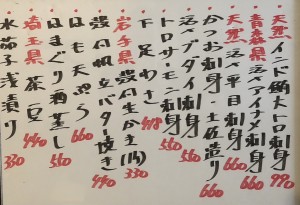 ・天然インド鮪大トロ刺身 990
・青森県活〆アイナメ刺身 660
・天然活〆平目刺身 660
・かつお刺身・土佐造り 660
・活〆ブダイ刺身 550
・トロサーモン刺身 550
・下足わさ 418
・岩手県産殻付生かき(1ヶ) 330
・殻付帆立バター焼き 440
・はも天ぷら 660
・はまぐり酒蒸し 550
・埼玉県茶豆 440
・水茄子浅漬り 330